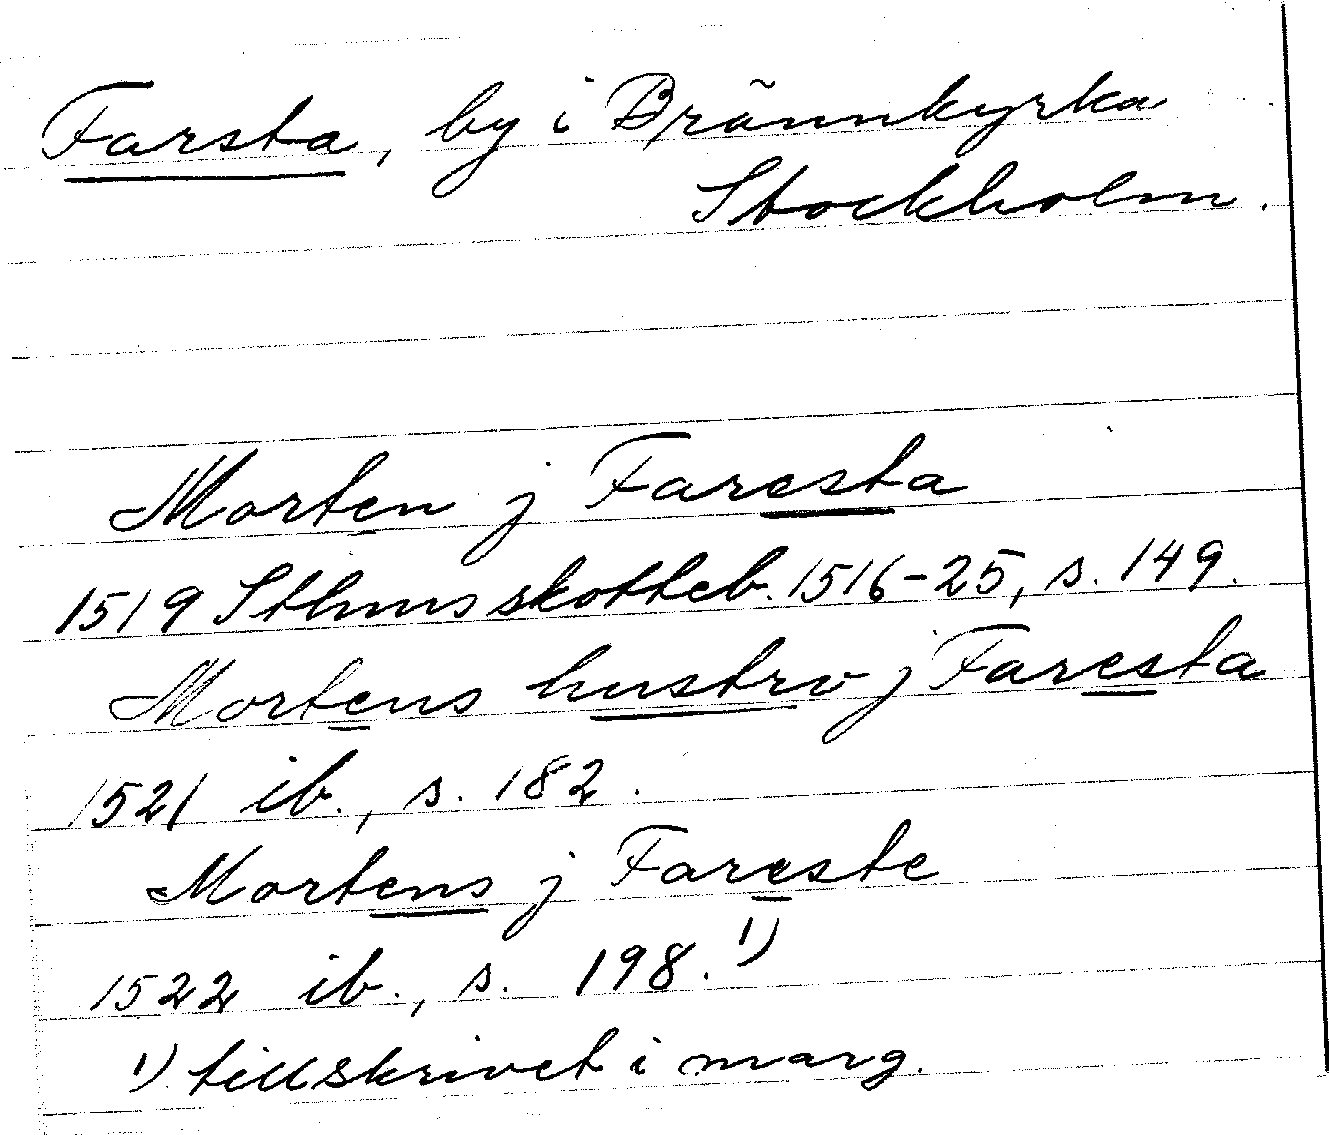 Farsta, by i Brännkyrka
Stockholm.
Morten j Faresta
1519 Sthms skotteb. 1516-25, s. 149.
Mortens hustrv j Faresta
1521 ib., s. 182.
Mortens j Fareste
1522 ib., s. 198. 1)
1) tillskrivet i marg.